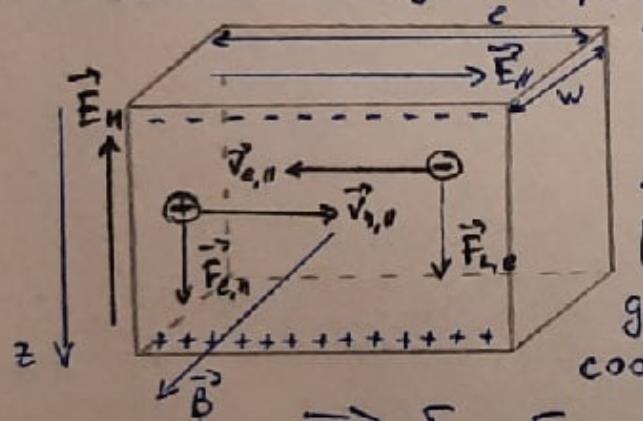 ℓ
E⃗_∥
w
E⃗_H
- - - - - - - - - -
v⃗_e,∥
-
+
v⃗_h,∥
F⃗_L,e
+ + + + + + + + + + + +
z
B⃗
g
coo